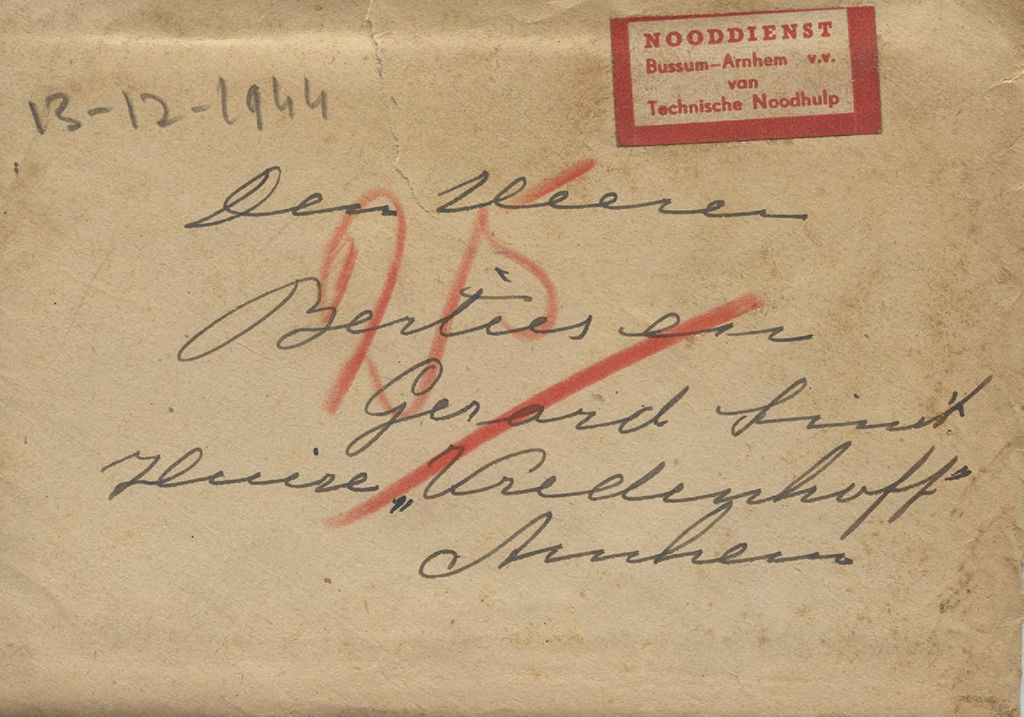 NOODDIENST
Bussum-Arnhem v.v.
van
Technische Noodhulp
13-12-1944
Den Heeren
Berties en
Gerard
Huize „Vredenhoff”
Arnhem